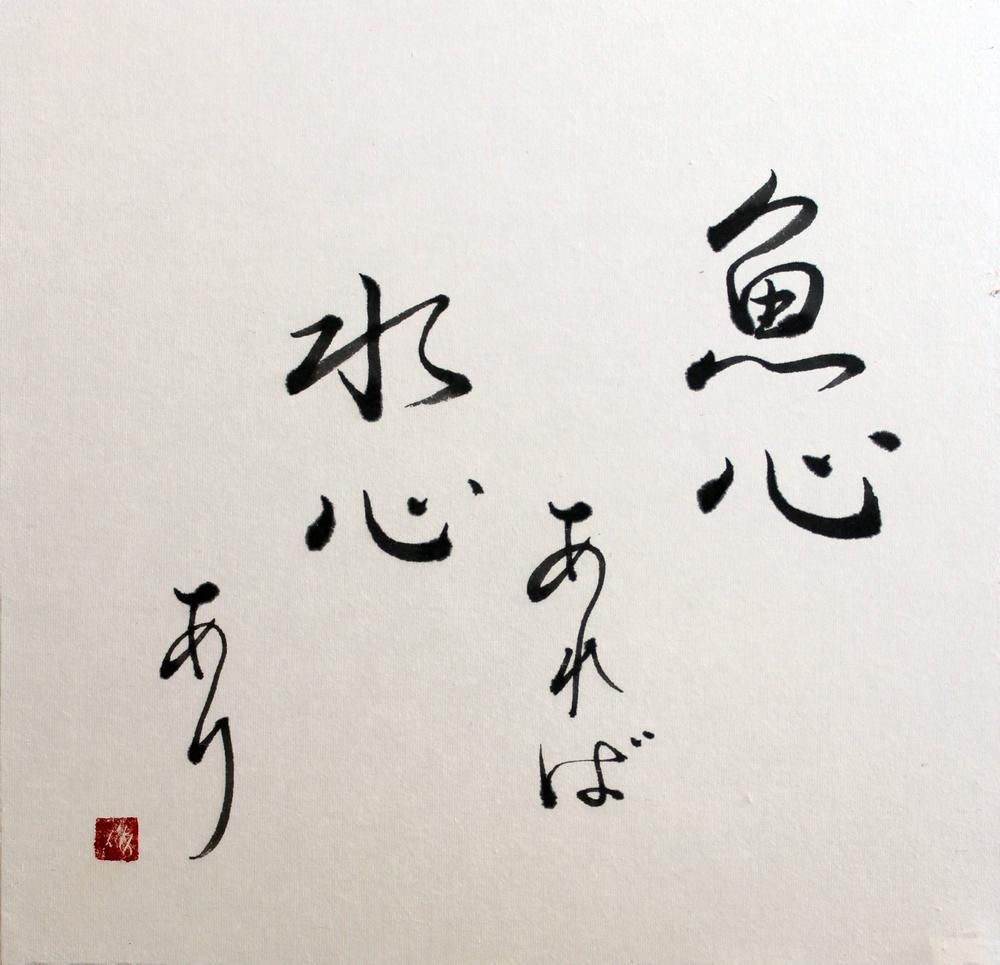 魚心
あれば
水心
あり